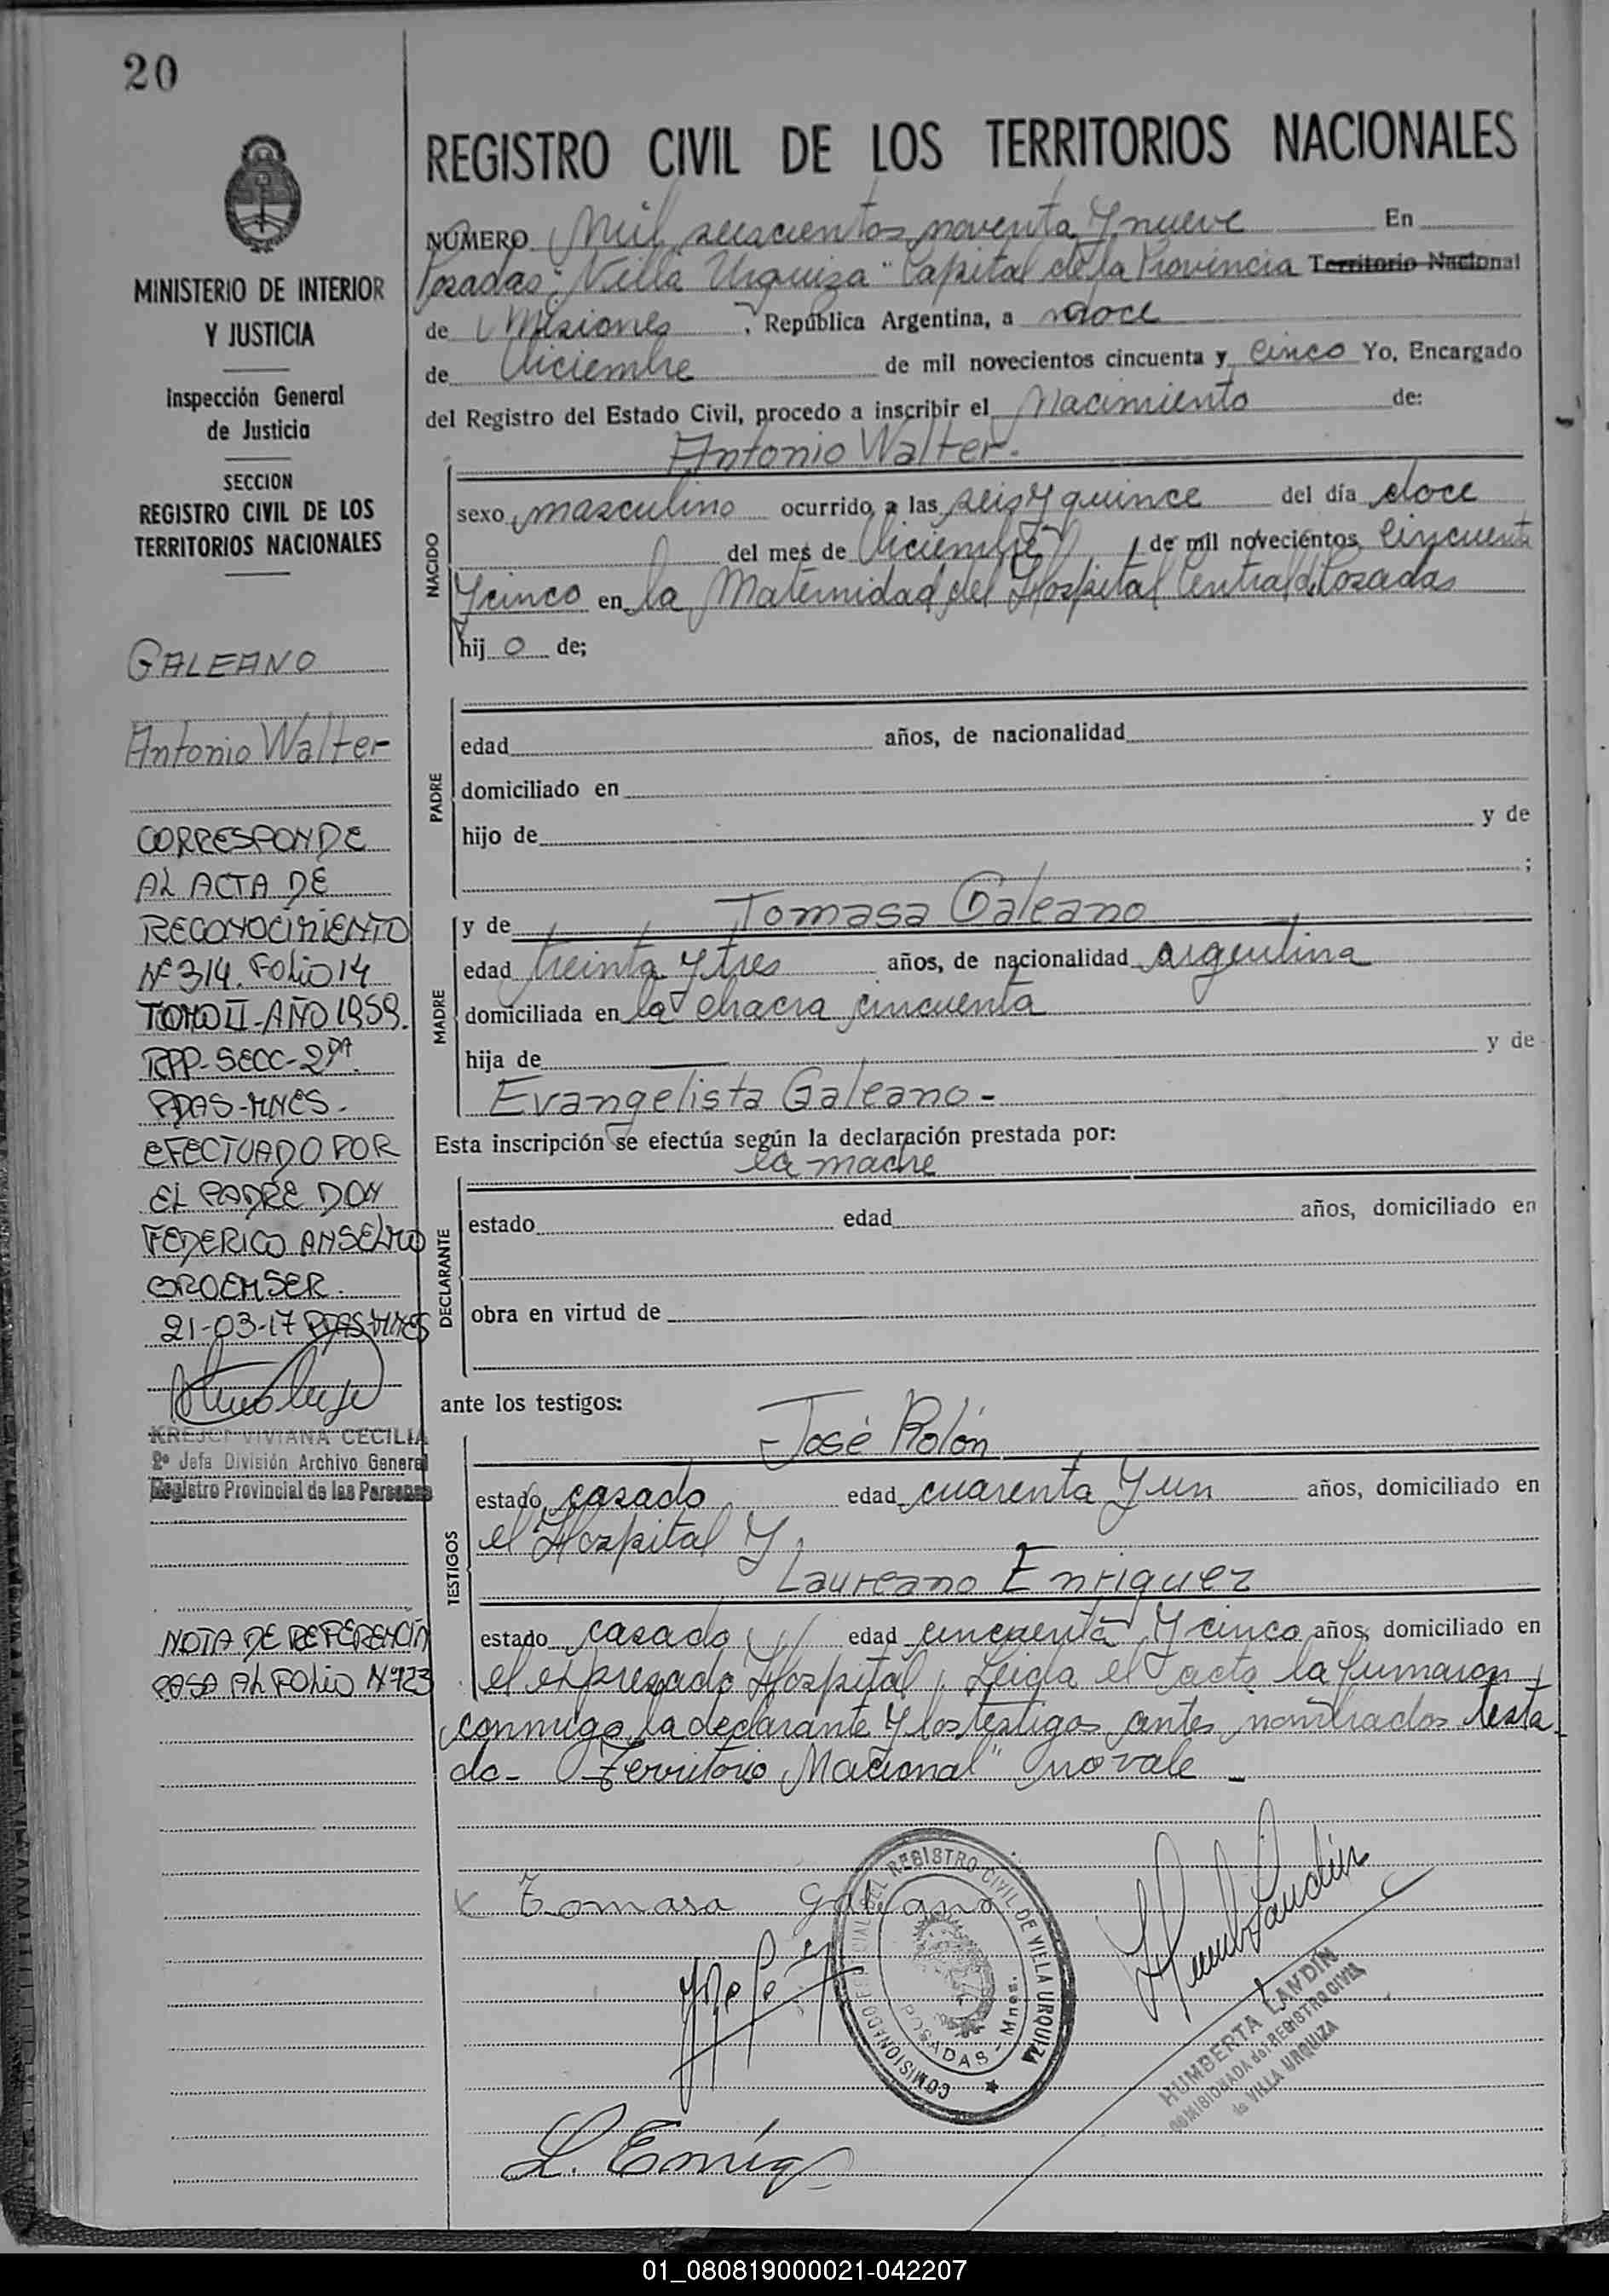 20
MINISTERIO DE INTERIOR
Y JUSTICIA
Inspección General
de Justicia
SECCION
REGISTRO CIVIL DE LOS
TERRITORIOS NACIONALES
GALEANO
Antonio Walter
CORRESPONDE
AL ACTA DE
RECONOCIMIENTO
Nº 314. FOLIO 14
TOMO II - AÑO 1959.
RPP - SECC - 2DA.
PDAS - MNES -
EFECTUADO POR
EL PADRE DON
FEDERICO ANSELMO
21-03-17 PDAS-MNES
KREJCI VIVIANA CECILIA
2º Jefa División Archivo General
Registro Provincial de las Personas
NOTA DE REFERENCIA
PASA AL FOLIO Nº 123
REGISTRO CIVIL DE LOS TERRITORIOS NACIONALES
NÚMERO Mil seiscientos noventa y nueve En
Posadas "Villa Urquiza" Capital de la Provincia Territorio Nacional
de Misiones, República Argentina, a doce
de Diciembre de mil novecientos cincuenta y cinco Yo, Encargado
del Registro del Estado Civil, procedo a inscribir el Nacimiento de:
Antonio Walter.
NACIDO
sexo masculino ocurrido a las seis y quince del día doce
del mes de Diciembre, de mil novecientos cincuenta
y cinco en la Maternidad del Hospital Central de Posadas
hij o de;
PADRE
edad años, de nacionalidad
domiciliado en
hijo de y de
;
MADRE
y de Tomasa Galeano
edad treinta y tres años, de nacionalidad argentina
domiciliada en la chacra cincuenta
hija de y de
Evangelista Galeano -
Esta inscripción se efectúa según la declaración prestada por:
la madre
DECLARANTE
estado edad años, domiciliado en
obra en virtud de
ante los testigos:
José Rolón
TESTIGOS
estado casado edad cuarenta y un años, domiciliado en
el Hospital y
Laureano Enriquez
estado casado edad cincuenta y cinco años, domiciliado en
el expresado Hospital, Leida el acta la firmaron
conmigo la declarante y los testigos antes nombrados testa
do - Territorio Nacional" no vale -
x Tomasa Galeano
COMISIONADO DEL REGISTRO CIVIL DE VILLA URQUIZA
POSADAS - Mnes.
HUMBERTA LANDÍN
COMISIONADA del REGISTRO CIVIL
de VILLA URQUIZA
01_080819000021-042207